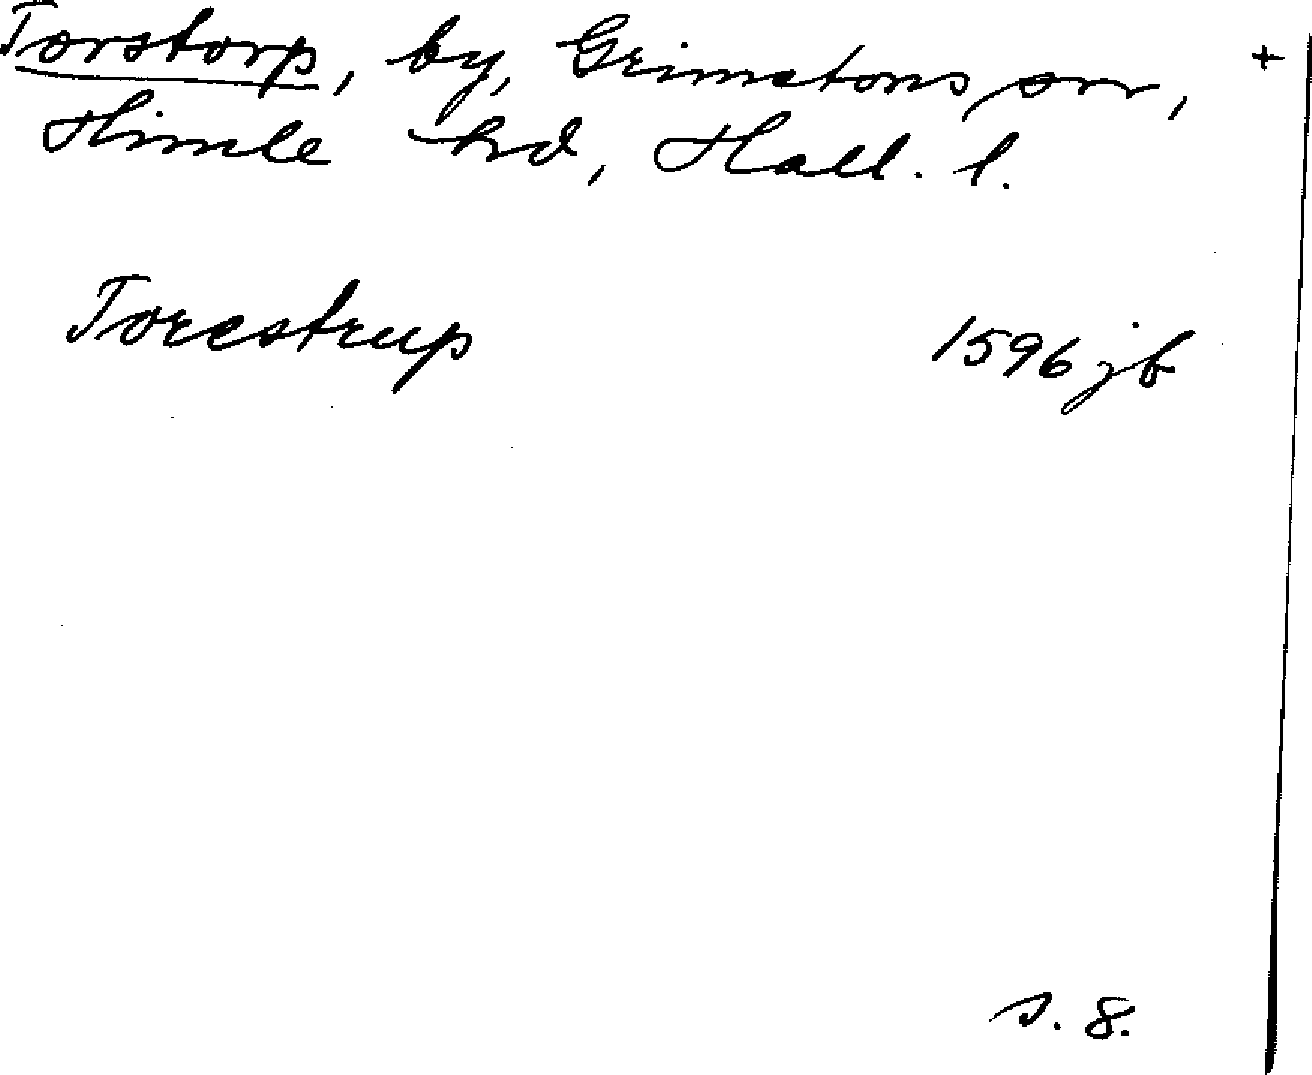 Torstorp, by, Grimetons sn, +
Himle hd, Hall. l.
Torestrup 1596 jb
s. 8.